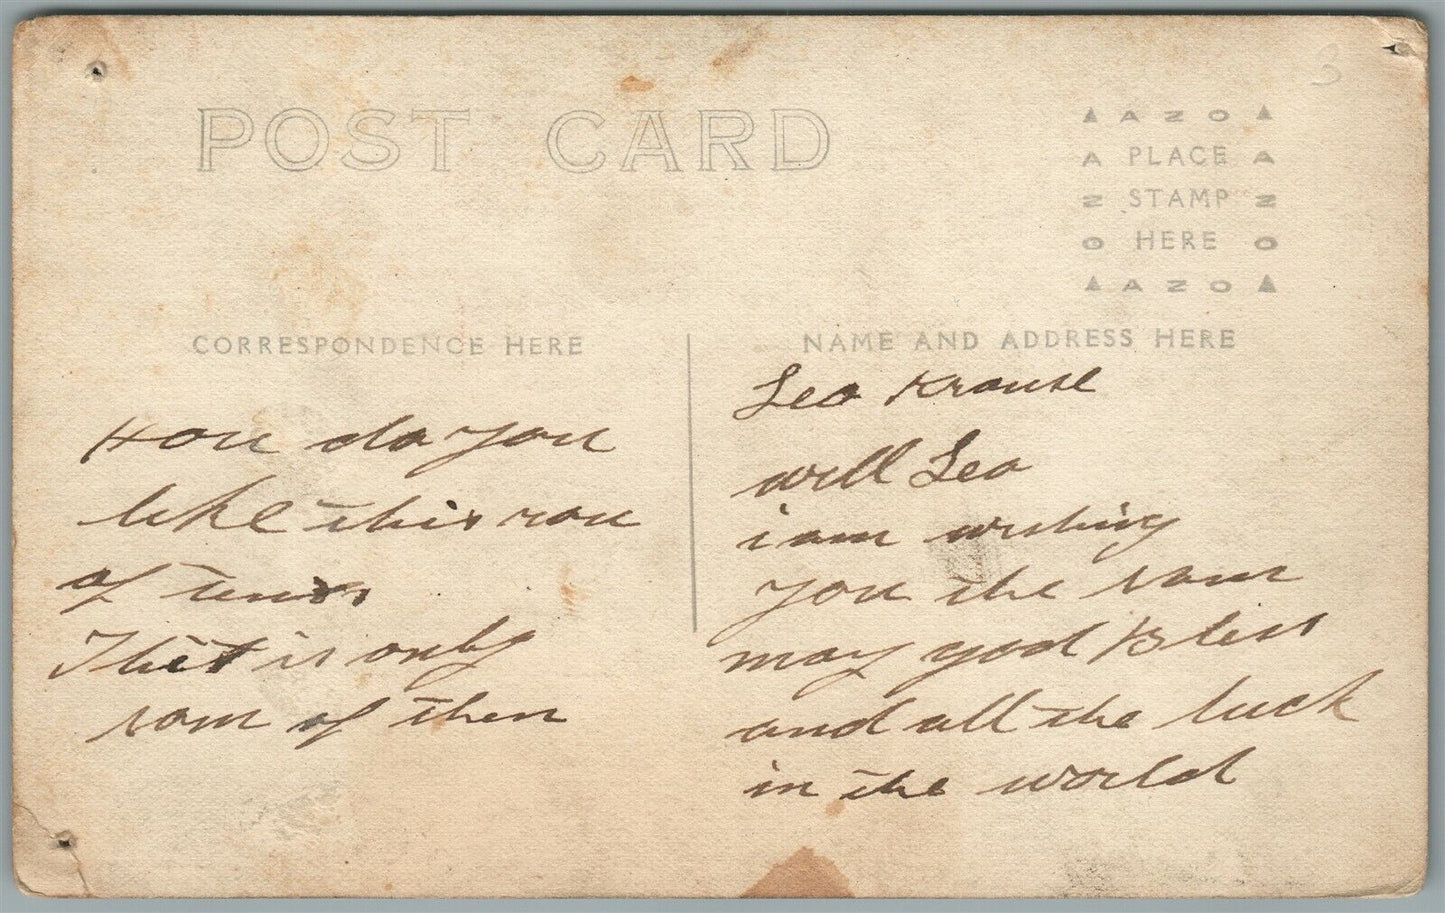 POST CARD
▲ A Z O ▲
A PLACE A
Z STAMP Z
O HERE O
▲ A Z O ▲
3
CORRESPONDENCE HERE
How do you
like this rou
of
That is only
som of them
NAME AND ADDRESS HERE
Leo Krause
will Leo
i am wishing
you the sam
may god Bless
and all the luck
in the world